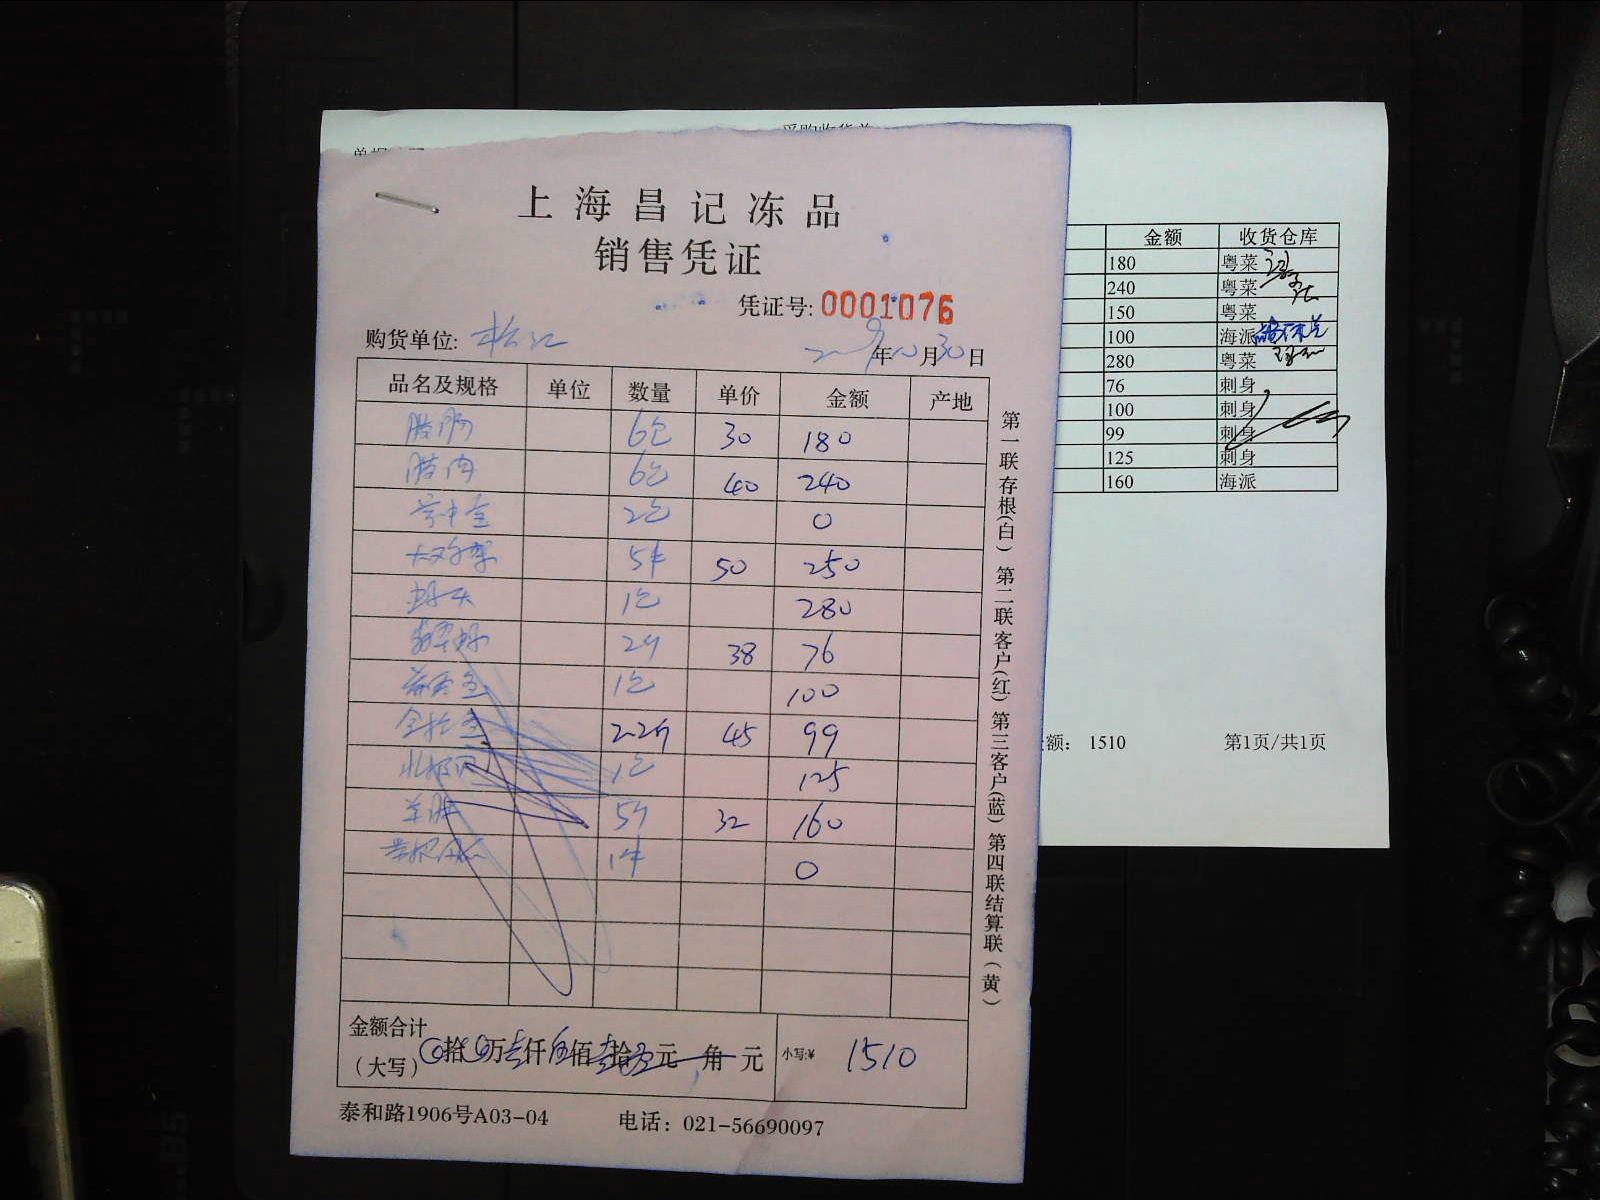 上海昌记冻品
销售凭证
凭证号: 0001076
购货单位: 松江
年10月30日
品名及规格 单位 数量 单价 金额 产地
腊肠 6包 30 180
腊肉 6包 40 240
2包 0
大鸡架 5件 50 250
1包 280
38 76
1包 100
2.2斤 45 99
1包 125
羊腿 5斤 32 160
1件 0
金额合计
(大写) 拾 万壹仟伍佰壹拾 元 角 元 小写:¥ 1510
泰和路1906号A03-04 电话: 021-56690097
第一联存根(白) 第二联客户(红) 第三客户(蓝) 第四联结算联(黄)
金额 收货仓库
180 粤菜
240 粤菜
150 粤菜
100 海派
280 粤菜
76 刺身
100 刺身
99 刺身
125 刺身
160 海派
额: 1510 第1页/共1页